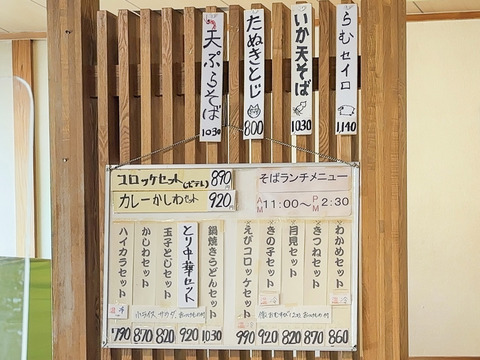 らむセイロ
1140
いか天そば
1030
たぬきとじ
800
天ぷらそば
1030
コロッケセット(ポテト) 890
カレーかしわセット 920
そばランチメニュー
AM 11:00〜PM 2:30
わかめセット
860
きつねセット
870
月見セット
820
きの子セット
920
えびコロッケセット
990
鍋焼きうどんセット
1030
とり中華セット
920
玉子とじセット
820
かしわセット
870
ハイカラセット
790